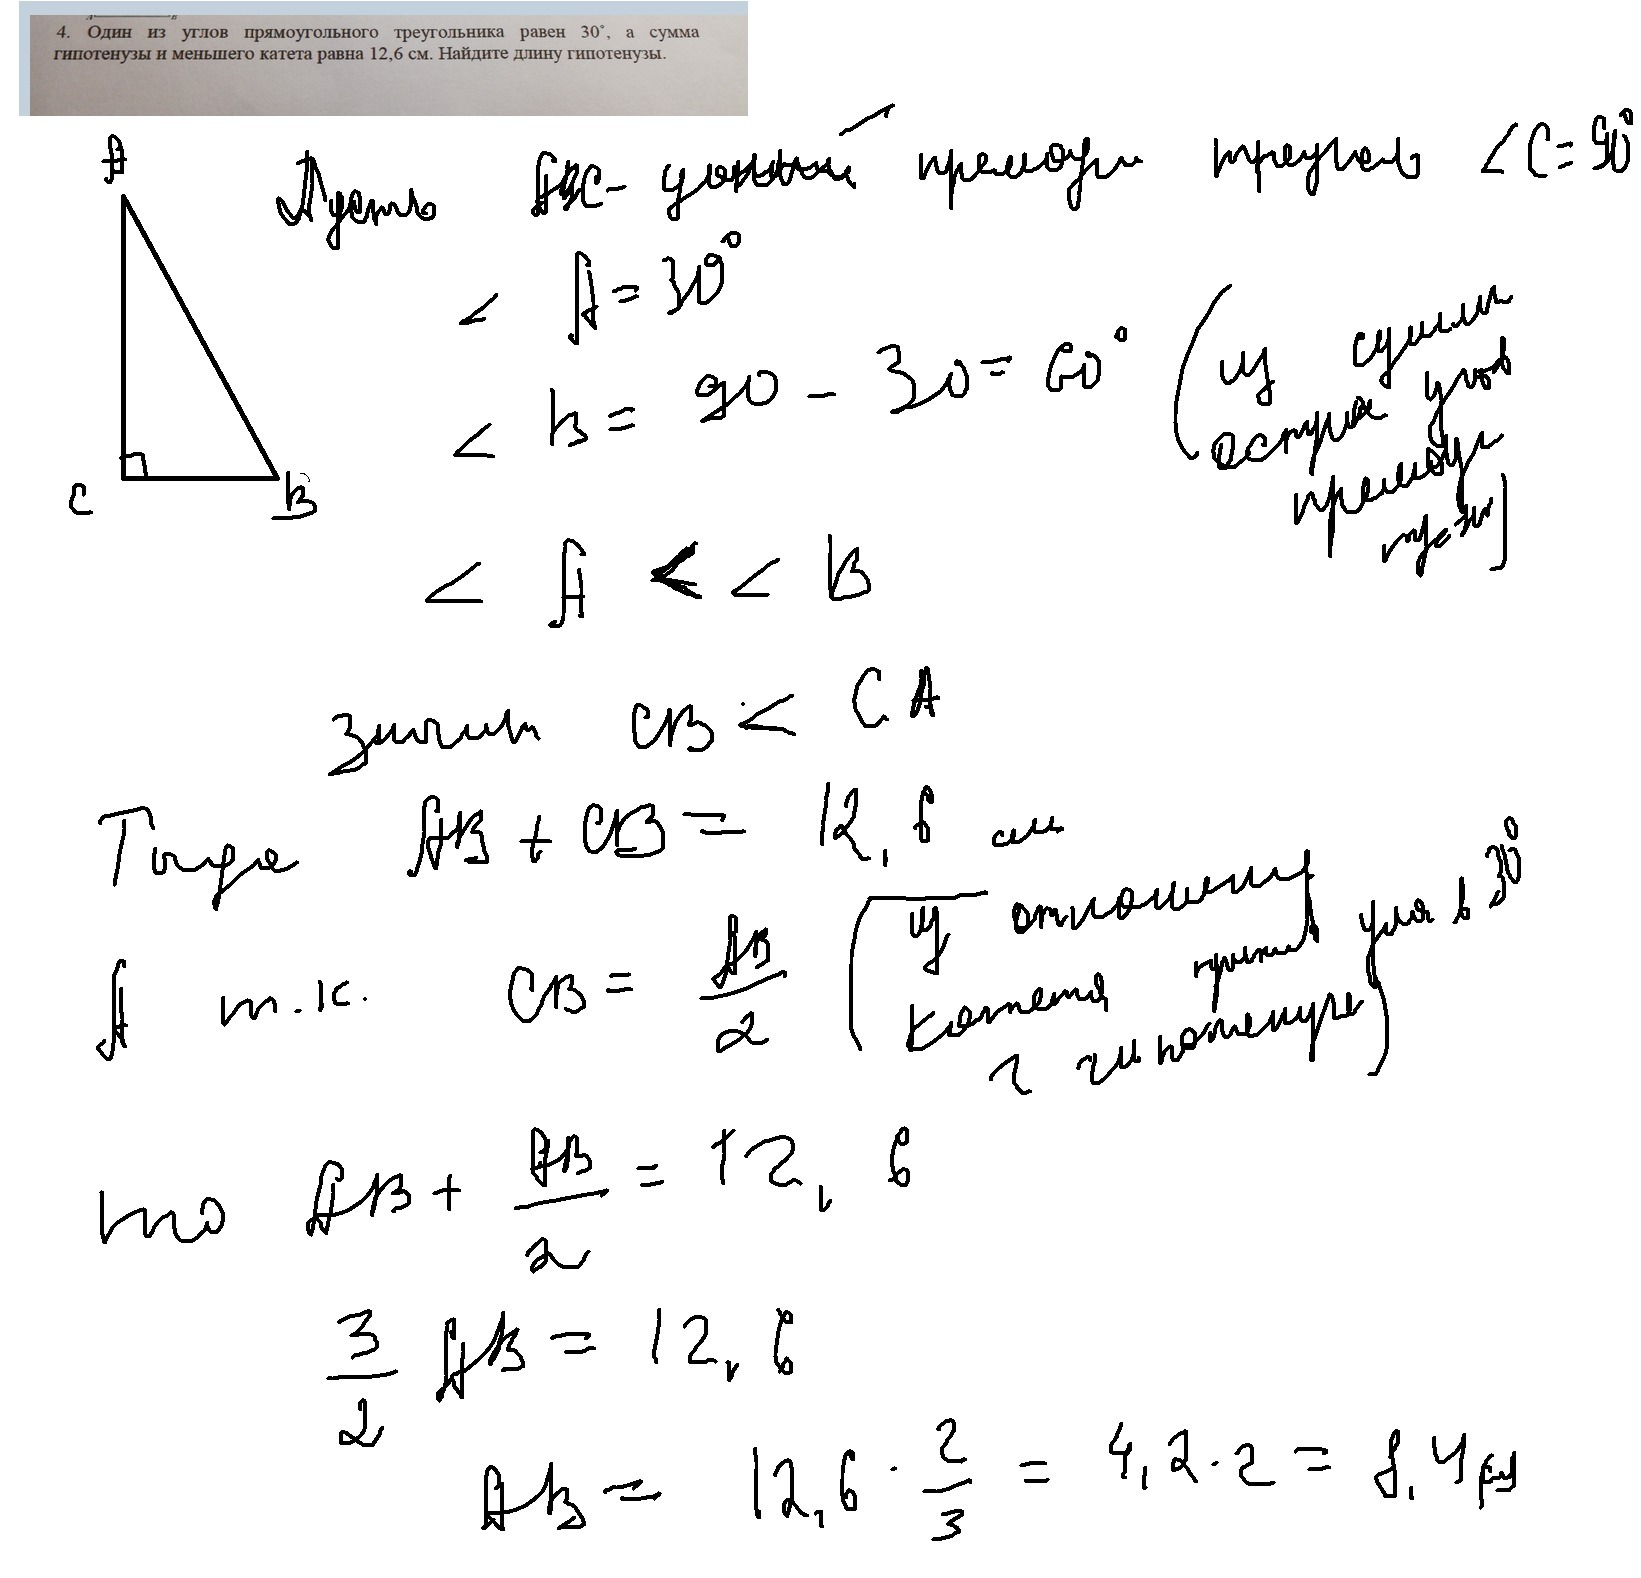 4. Один из углов прямоугольного треугольника равен 30°, а сумма
гипотенузы и меньшего катета равна 12,6 см. Найдите длину гипотенузы.
A
C
B
Пусть ABC - прямоуг треугол ∠C=90°
∠A=30°
∠B=90-30=60° (из суммы
острых углов
прямоуг
∠A < ∠B
Значит CB < CA
Тогда AB + CB = 12,6 см
А т.к. CB = AB/2 (из отношения
катета против угла в 30°
к гипотенузе)
то AB + AB/2 = 12,6
3/2 AB = 12,6
AB = 12,6 · 2/3 = 4,2 · 2 = 8,4 (см)